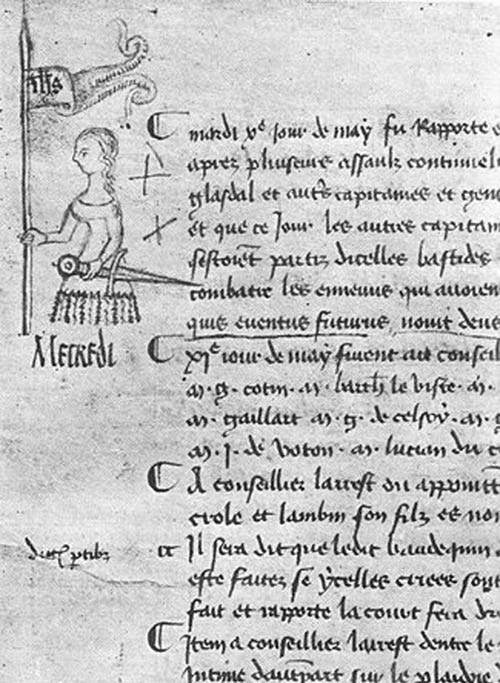 ihs
mardi xe jour de may fu Rapporte
apres pluseurs assaulz continuel
glasdal et autres capitaines et gen
et que ce jour les autres capitain
sestoient partiz dicelles bastides
combatre les ennemis qui avoien
quis eventus futurus novit deus
MECREDI
xje jour de may furent au conseil
m. g. cotin. m. barth le viste. m.
m. gaillart m. g. de celsoy. m. g
m. j. de voton. m. lucian du c
A conseillier larrest ou appoint
crole et lambin son filz et
Il sera dit que ledit baudequin
este faites se ycelles criees sont
fait et rapporte la court fera dr
Item a conseillier larrest dentre le
intime dautrepart sur le plaidoie